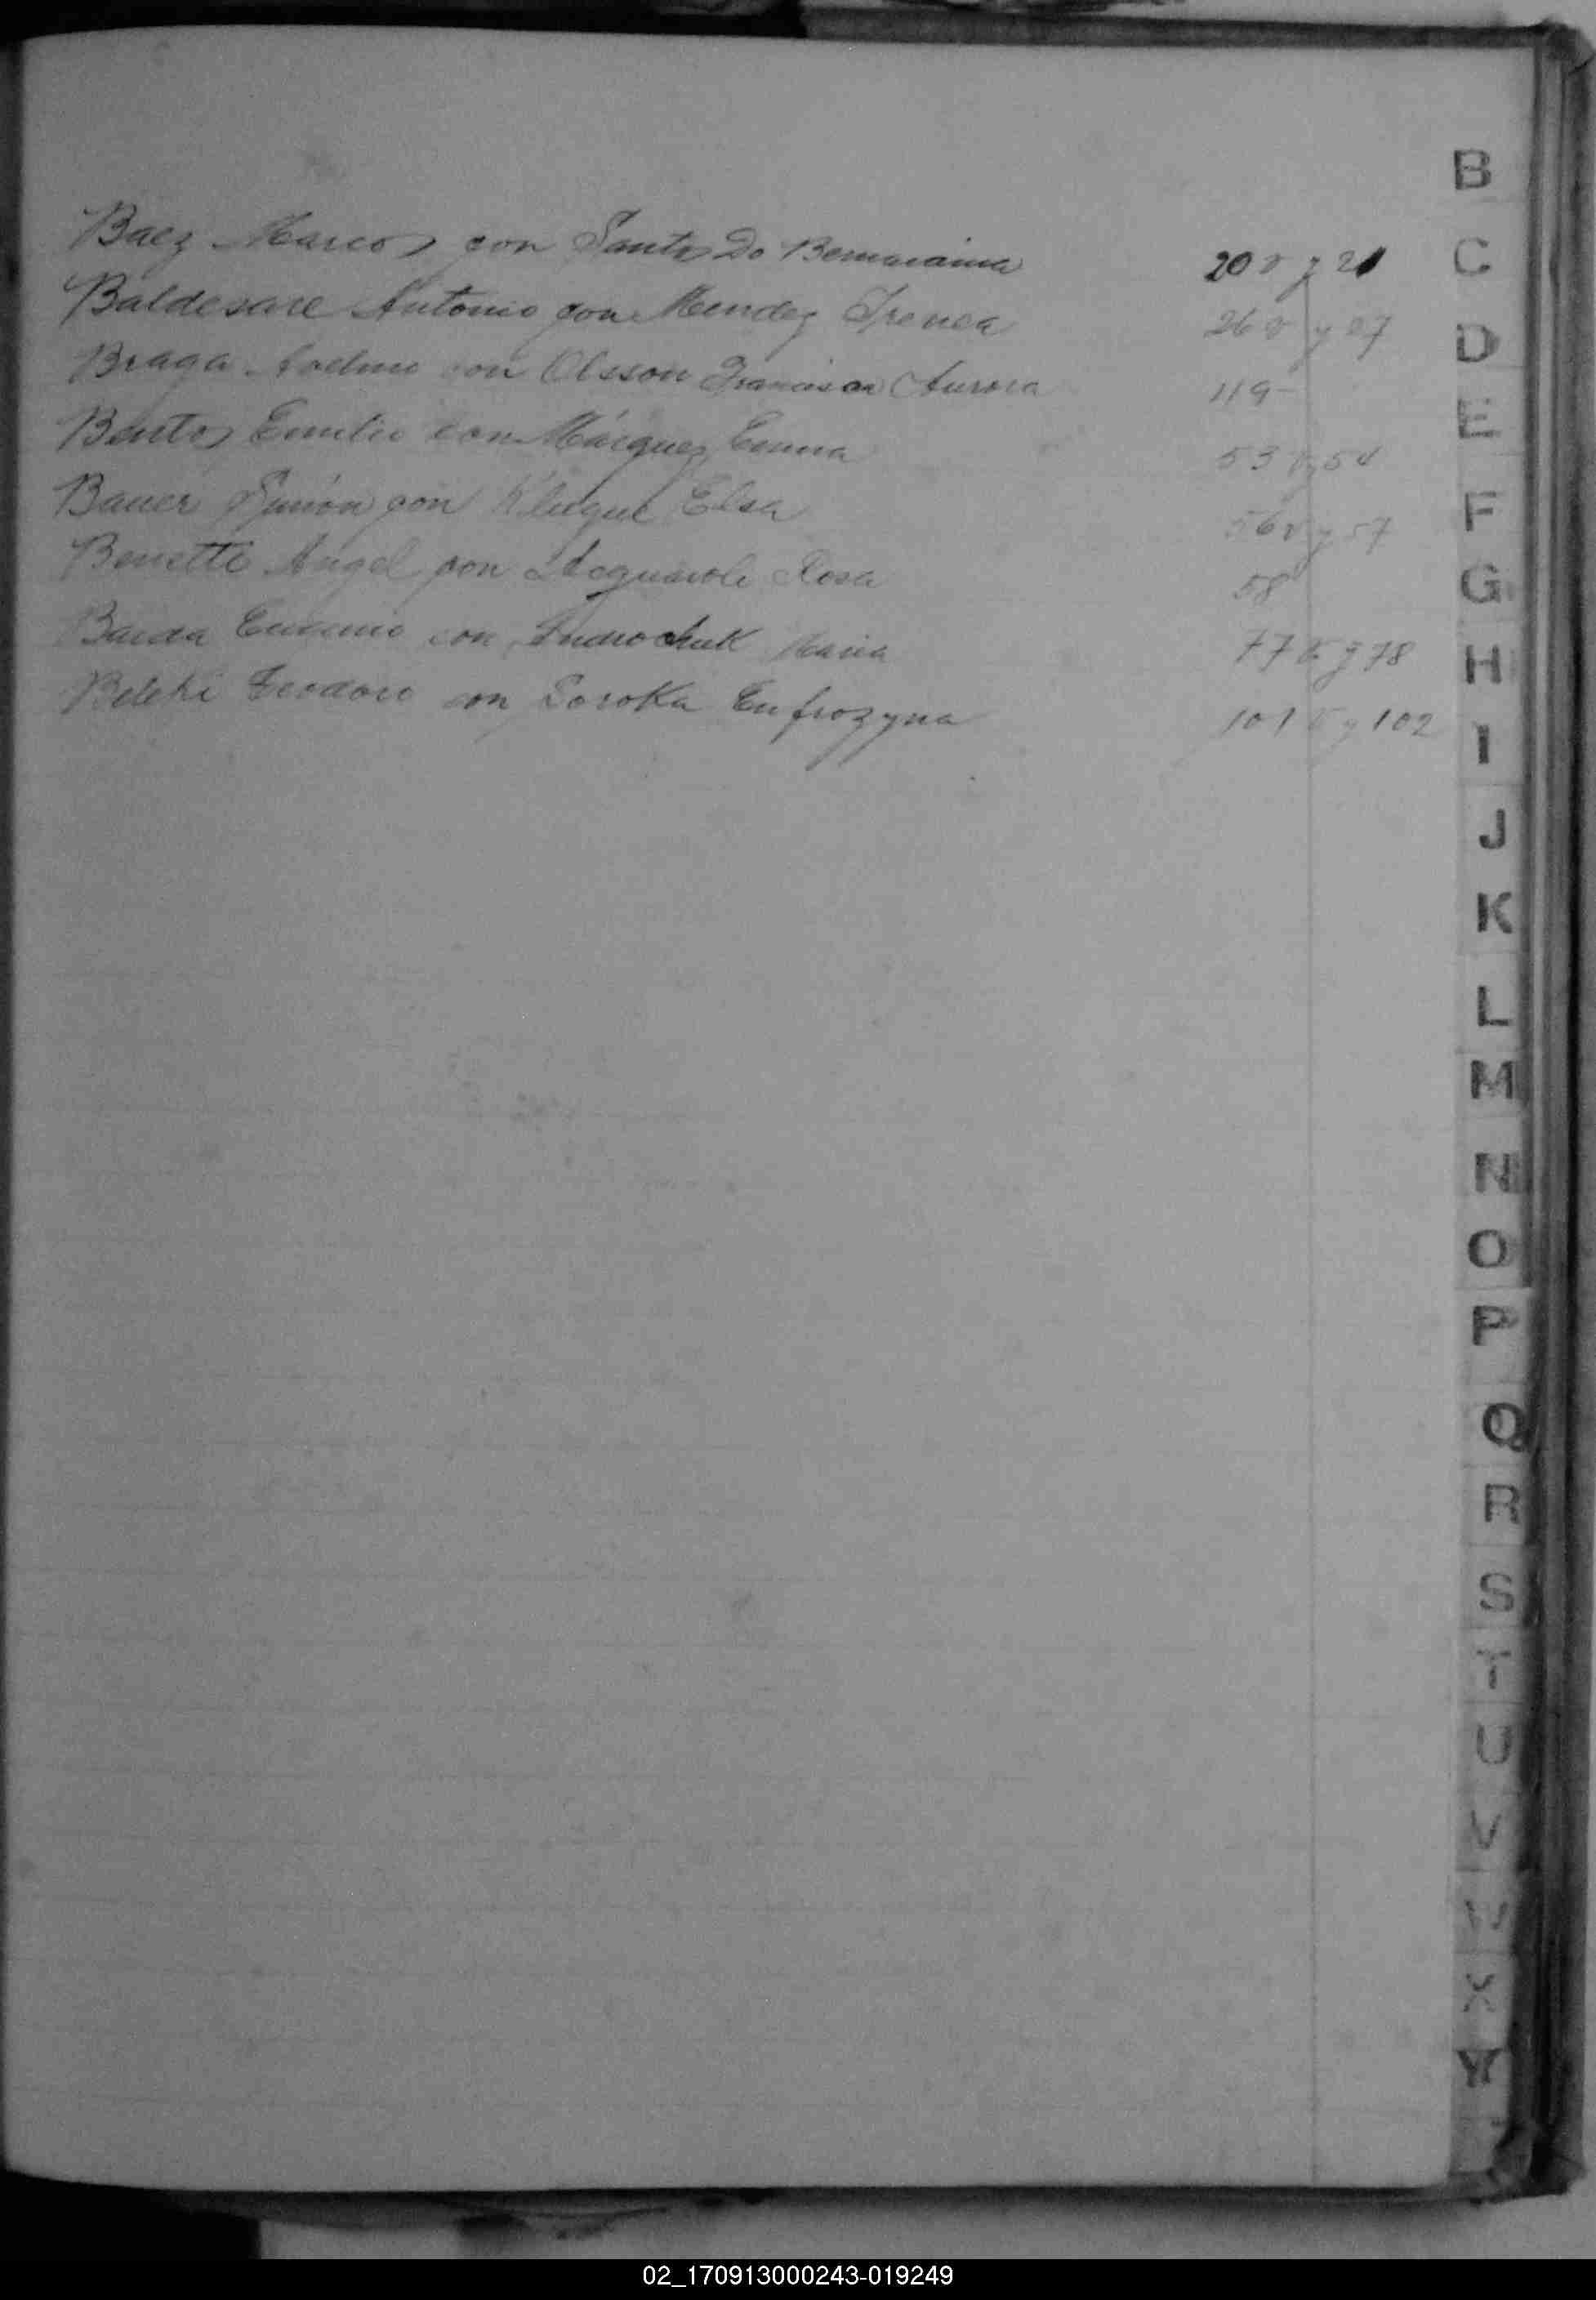 B
Baez Marcos con Santos Do Bernaraina 20 v y 21
C
Baldesare Antonio con Mendez Irenea 26 v y 27
D
Braga Avelino con Olsson Francisca Aurora 119
E
Bentos Emilio con Márquez Emma 53 v y 54
F
Bauer Simón con Klugue Elsa 56 v y 57
G
Benetti Angel con Rosa 58
H
Eugenio con Androchuk Maria 77 v y 78
I
Beleki Teodoro con Soroka Eufrozyna 101 v y 102
J
K
L
M
N
O
P
Q
R
S
T
U
V
W
X
Y
02_170913000243-019249